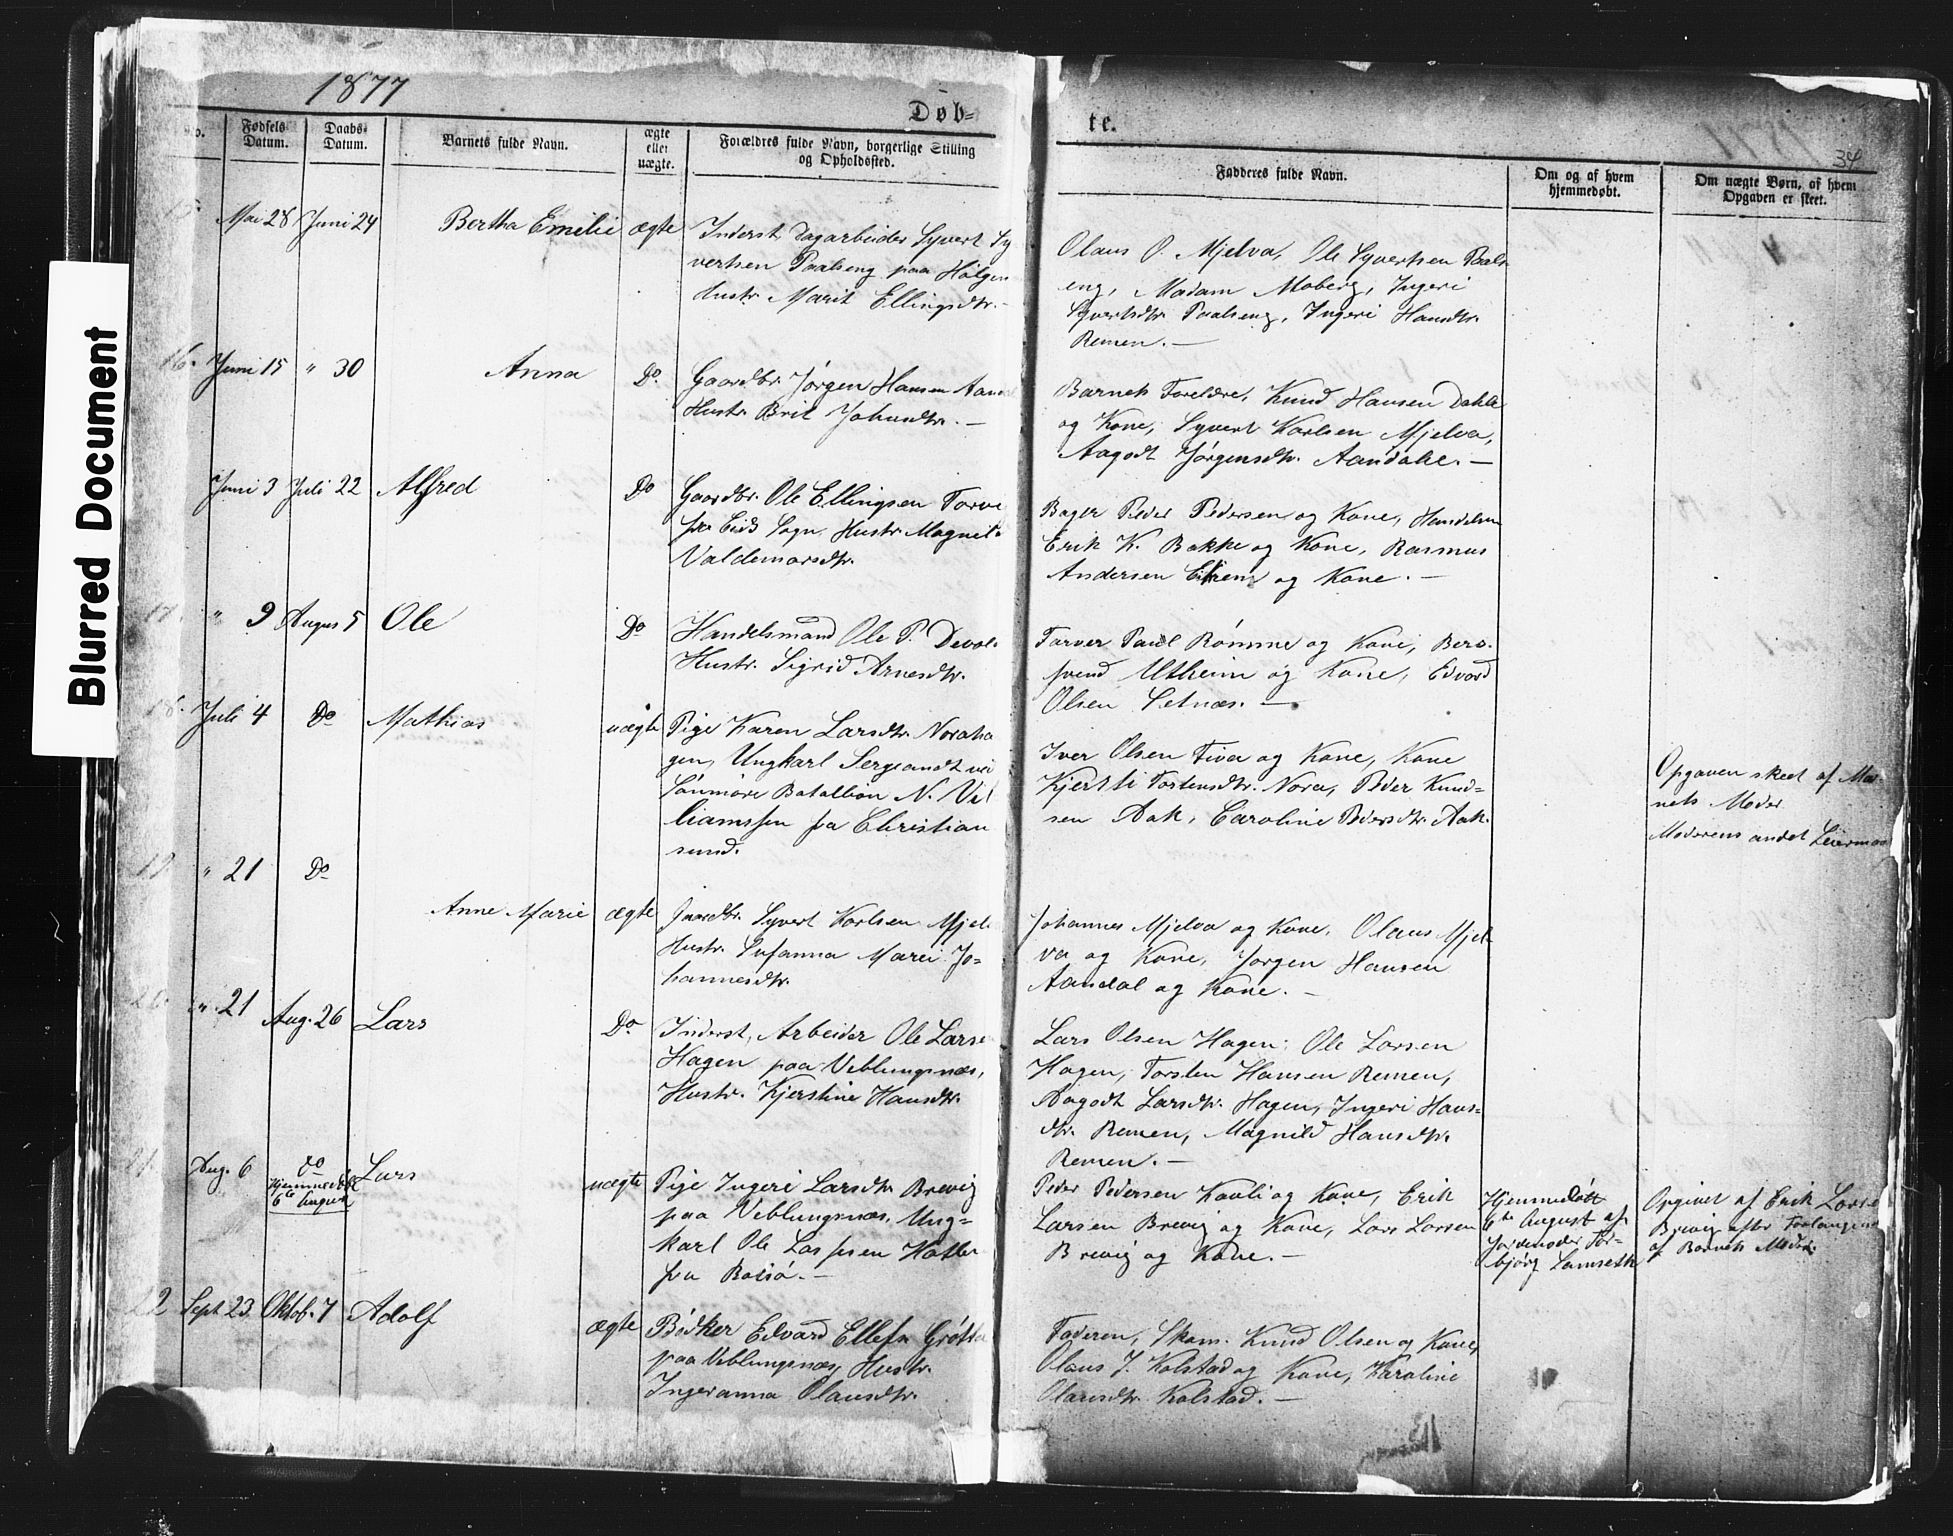 Blurred Document
1877
Døb-
te.
34
No.
Fødsels Datum.
Daabs Datum.
Barnets fulde Navn.
ægte eller uægte.
Forældres fulde Navn, borgerlige Stilling og Opholdssted.
Fadderes fulde Navn.
Om og af hvem hjemmedøbt.
Om uægte Børn, af hvem Opgaven er skeet.
15.
Mai 28 Juni 24 Bertha Emelie ægte
Inderst, Dagarbeider Syvert Sy
vertsen Paalseng paa Hølgen
Hustr. Marit Ellingsdtr. —
Olaus O. Mjelva, Ole Syvertsen Paals
eng, Madam Moberg, Ingeri
Syvertsdtr. Paalseng, Ingeri Hansdtr.
Remen. —
16. Juni 15 " 30 Anna Do.
Gaardbr. Jørgen Hansen Aandal
Hustr. Brit Johnsdtr. —
Barnets Forældre, Knud Hansen Dahle
og Kone, Syvert Karlsen Mjelva,
Aagodt Jørgensdtr. Aandahl. —
Juni 3 Juli 22 Alfred Do
Gaardbr. Ole Ellingsen Torve
fra Eids Sogn, Hustr. Magnil
Valdemarsdtr.
Bager Peder Pedersen og Kone, Handelsm
Erik K. Bakke og Kone, Rasmus
Andersen Eikrem og Kone. —
17. " 9 Augus 5 Ole Do
Handelsmand Ole P. Devol.
Hustr. Sigrid Arnesdtr.
Farver Paul Rømme og Kone, Bero-
svend Utheim og Kone, Edvard
Olsen Setnæs. —
18. Juli 4 Do Mathias uægte
Pige Karen Larsdtr. Noraha
gen, Ungkarl Sergeandt ved
Sønmøre Batallion N. Vil
liamssen fra Christian
sund.
Iver Olsen Tiva og Kone, Kone
Kjersti Tostensdtr. Nora, Peder Knud-
sen Aak, Caroline Pedersdtr. Aak.
Opgaven skeet af Bar-
nets Moder
Moderens andet Leiermaal
19. " 21 Do
Anne Marie ægte
Gaardbr. Syvert Karlsen Mjel
Hustr. Susanna Marei Jo-
hannesdtr.
Johannes Mjelva og Kone, Olaus Mjel
va og Kone, Jørgen Hansen
Aandal og Kone. —
20. " 21 Aug. 26 Lars Do
Inderst, Arbeider Ole Larse
Hagen paa Veblungsnæs,
Hustr. Kjerstine Hansdtr.
Lars Olsen Hagen, Ole Larsen
Hagen, Torsten Hansen Remen,
Aagodt Larsdtr. Hagen, Ingeri Hans-
dtr. Remen, Magnild Hansdtr.
Remen. —
21. Aug. 6 Do Lars uægte
Hjemmedøbt
6te August
Pige Ingeri Larsdtr Brevig
paa Veblungsnæs, Ung-
karl Ole Larssen Hatle
fra Bolsø. —
Peder Pedersen Kavli og Kone, Erik
Larsen Brevig og Kone, Lars Larsen
Brevig og Kone. —
Hjemmedøbt
6te August af
Jordemoder Tor-
bjørg Lamseth
Opgivet af Erik Larse
Brevig efter Forlangen
af Barnets Moder.
22 Sept 23. Oktob. 7 Adolf ægte
Bødker Edvard Ellefs. Grøtta
paa Veblungsnæs, Hustr.
Ingeranna Olausdtr.
Faderen, Skom. Knud Olsen og Kone,
Olaus J. Kolstad og Kone, Karoline
Olausdtr. Kolstad. —